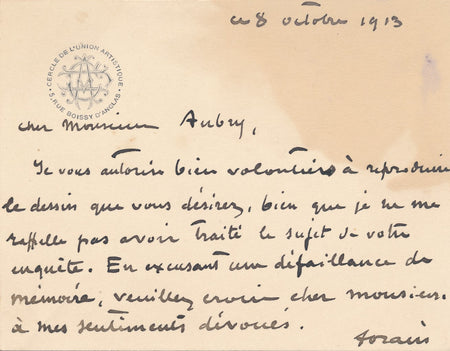 ce 8 octobre 1913
CERCLE DE L'UNION ARTISTIQUE
5, RUE BOISSY D'ANGLAS
cher Monsieur Aubry,
Je vous autorise bien volontiers à reproduire
le dessin que vous désirez, bien que je ne me
rappelle pas avoir traité le sujet de votre
enquête. En excusant une défaillance de
mémoire, veuillez croire cher monsieur
à mes sentiments dévoués.
forain